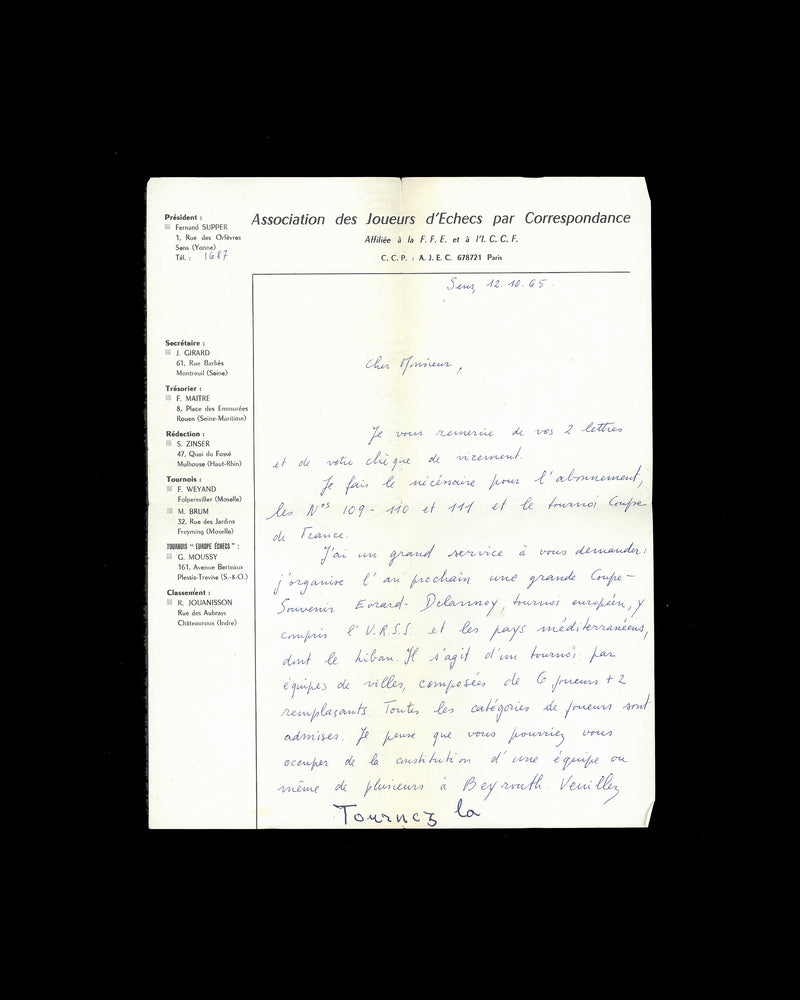 Association des Joueurs d'Echecs par Correspondance
Affiliée à la F. F. E. et à l'I. C. C. F.
C. C. P. : A. J. E. C. 678721 Paris
Président :
Fernand SUPPER
1, Rue des Orfèvres
Sens (Yonne)
Tél. : 1687
Secrétaire :
J. GIRARD
61, Rue Barbès
Montreuil (Seine)
Trésorier :
F. MAITRE
8, Place des Emmurées
Rouen (Seine-Maritime)
Rédaction :
S. ZINSER
47, Quai du Fossé
Mulhouse (Haut-Rhin)
Tournois :
F. WEYAND
Folpersviller (Moselle)
M. BRUM
32, Rue des Jardins
Freyming (Moselle)
TOURNOIS " EUROPE ÉCHECS " :
G. MOUSSY
161, Avenue Berteaux
Plessis-Trevise (S.-&-O.)
Classement :
R. JOUANISSON
Rue des Aubrays
Châteauroux (Indre)
Sens, 12.10.65.
Cher Monsieur,
Je vous remercie de vos 2 lettres
et de votre chèque de virement.
Je fais le nécessaire pour l'abonnement,
les Nos 109 - 110 et 111 et le tournoi Coupe
de France.
J'ai un grand service à vous demander:
j'organise l'an prochain une grande Coupe-
Souvenir Evrard-Delannoy, tournoi européen, y
compris l'U.R.S.S. et les pays méditerranéens,
dont le Liban. Il s'agit d'un tournoi par
équipes de villes, composées de 6 joueurs + 2
remplaçants. Toutes les catégories de joueurs sont
admises. Je pense que vous pourriez vous
occuper de la constitution d'une équipe ou
même de plusieurs à Beyrouth. Veuillez
Tournez la